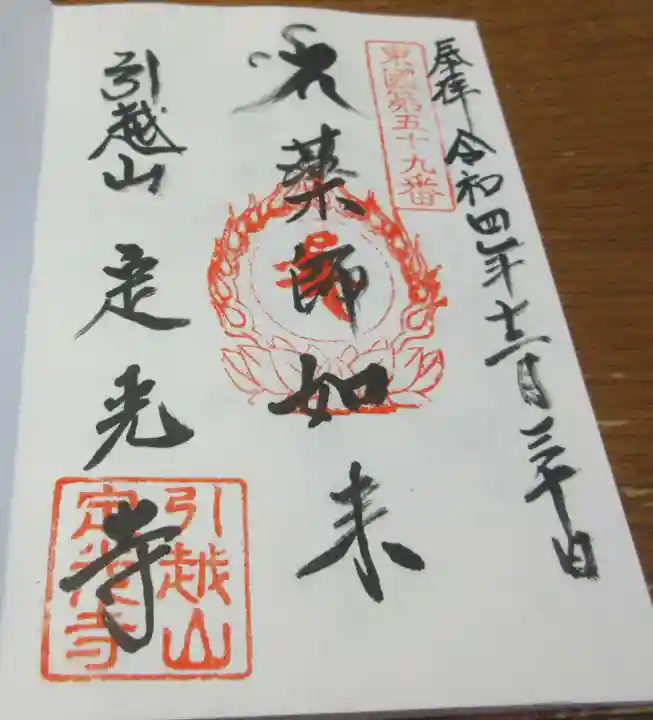 奉拝 令和四年十二月三十日
東國第五十九番
薬師如来
引越山 定光寺
引越山
定光寺